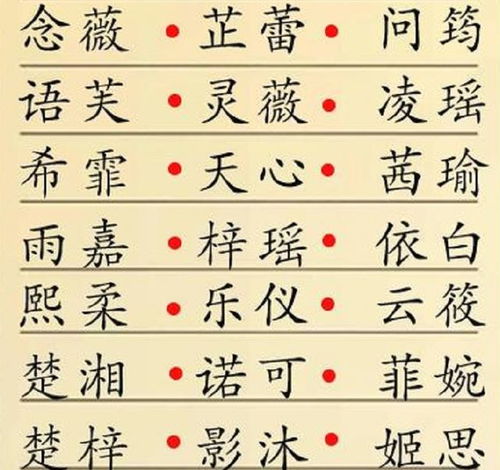 念薇 • 芷蕾 • 问筠
语芙 • 灵薇 • 凌瑶
希霏 • 天心 • 茜瑜
雨嘉 • 梓瑶 • 依白
熙柔 • 乐仪 • 云筱
楚湘 • 诺可 • 菲婉
楚梓 • 影沐 • 姬思